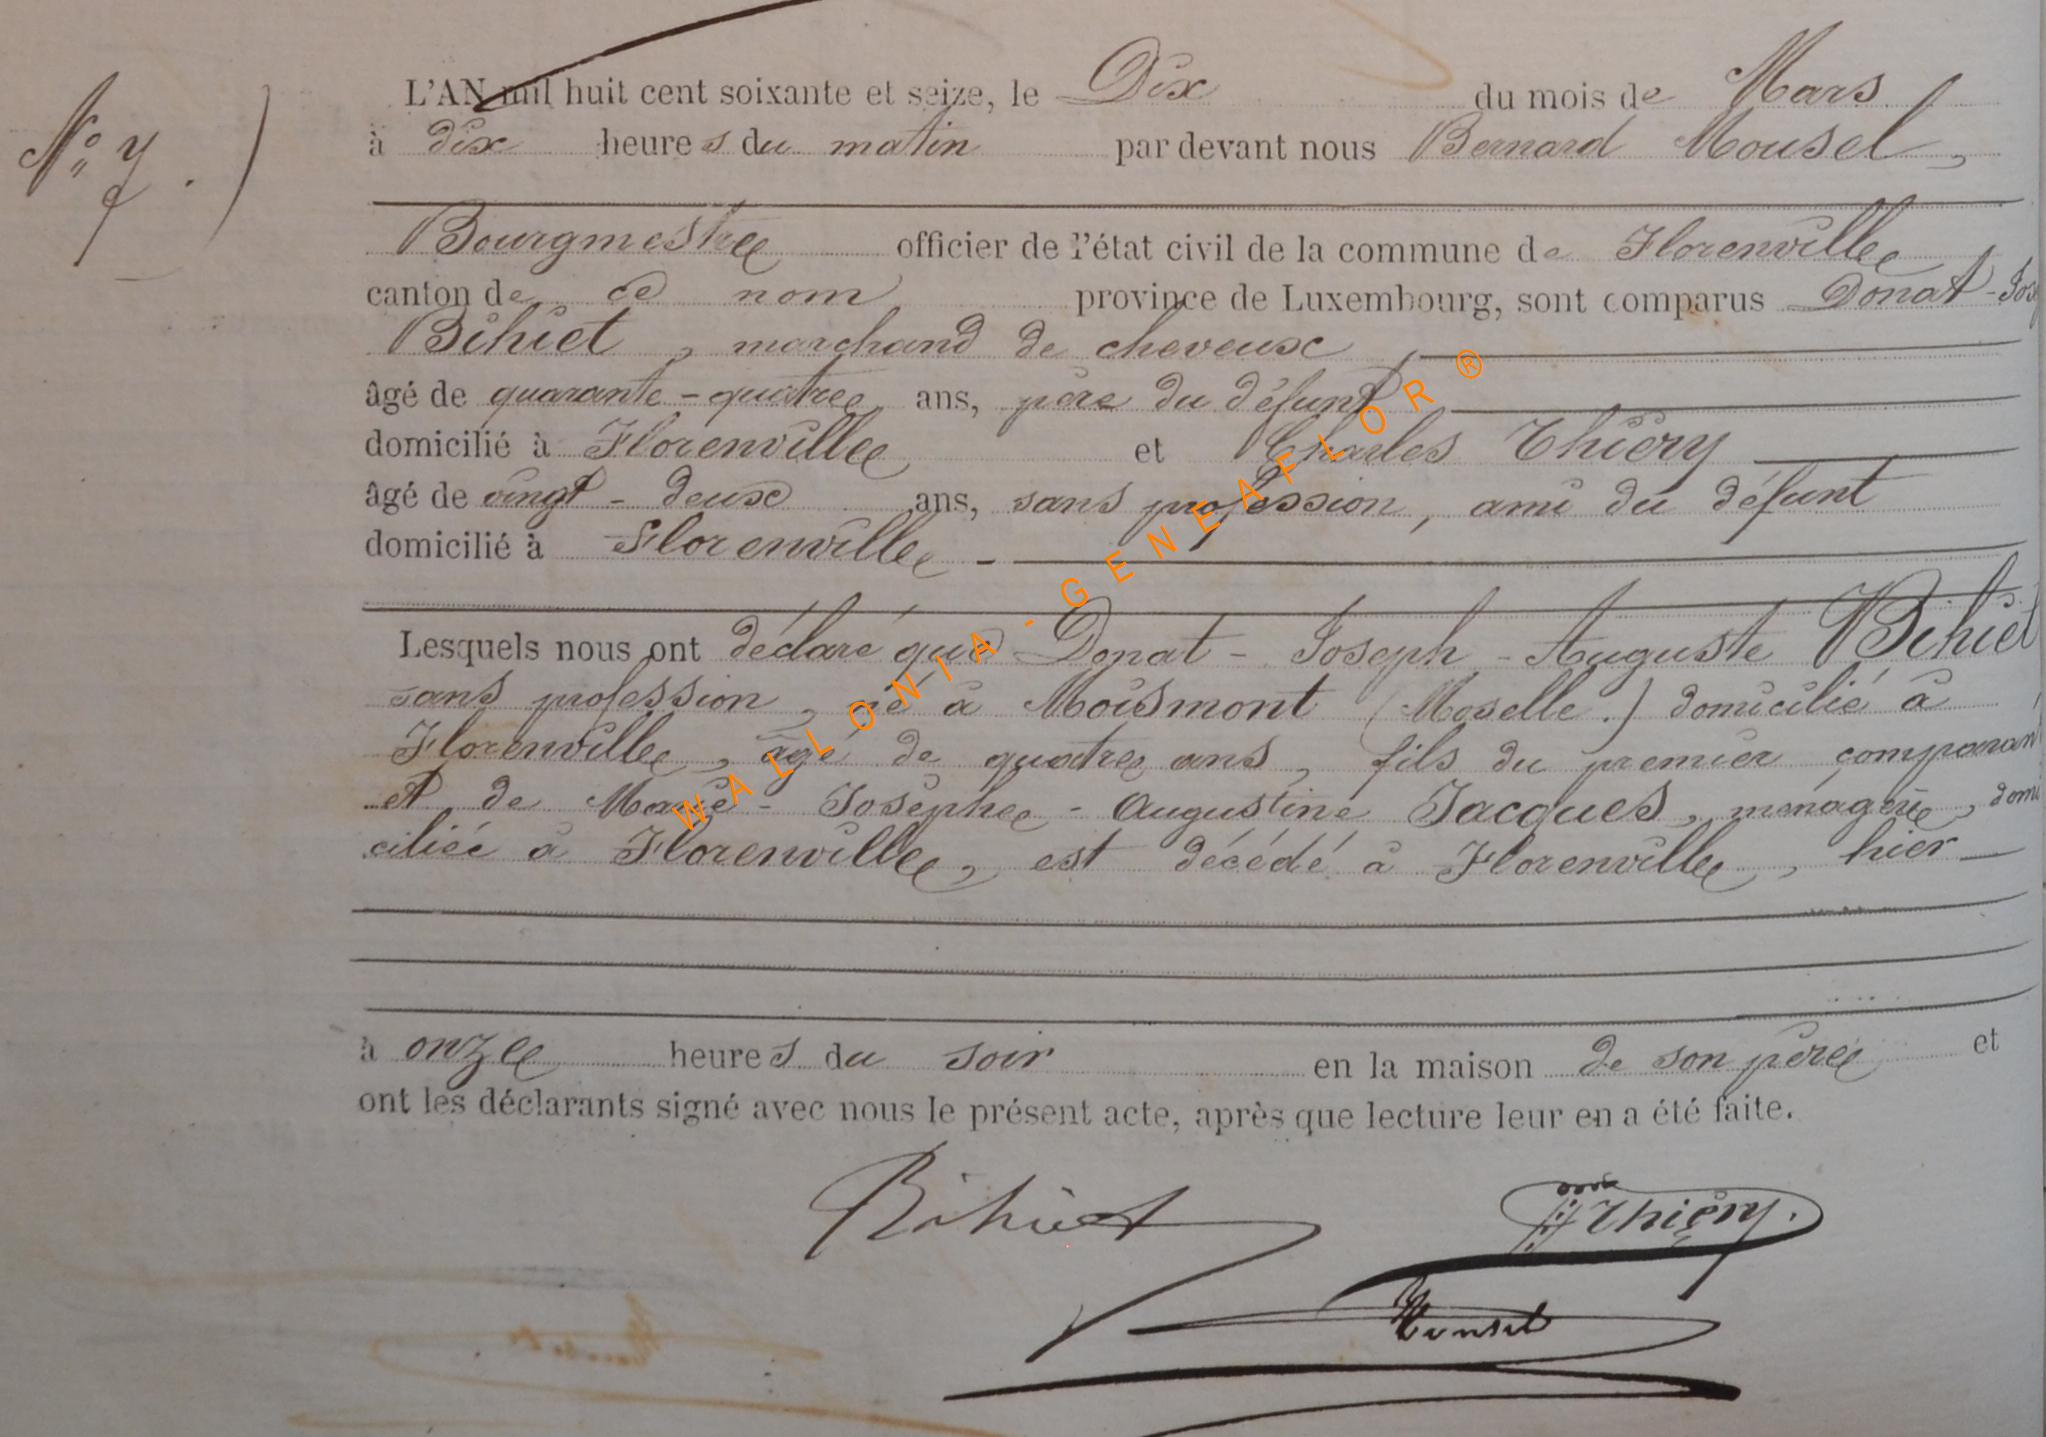 N° 7.)
L'AN mil huit cent soixante et seize, le Dix du mois de Mars
à dix heures du matin par devant nous Bernard Mousel,
Bourgmestre officier de l'état civil de la commune de Florenville
canton de ce nom province de Luxembourg, sont comparus Donat-Jos
Bihiet, marchand de cheveux,
âgé de quarante-quatre ans, père du défunt
domicilié à Florenville et Charles Thiéry
âgé de vingt-deux ans, sans profession, ami du défunt
domicilié à Florenville -
Lesquels nous ont déclaré que Donat-Joseph-Auguste Bihiet
sans profession, né à Moismont (Moselle.) domicilié à
Florenville, âgé de quatre ans, fils du premier comparant
et de Marie-Josèphe-Augustine Jacques, ménagère, domi
ciliée à Florenville, est décédé à Florenville, hier
à onze heures du soir en la maison de son père et
ont les déclarants signé avec nous le présent acte, après que lecture leur en a été faite.
Bihiet Thiéry.
Mousel
WALLONIA-GENEAFLOR®